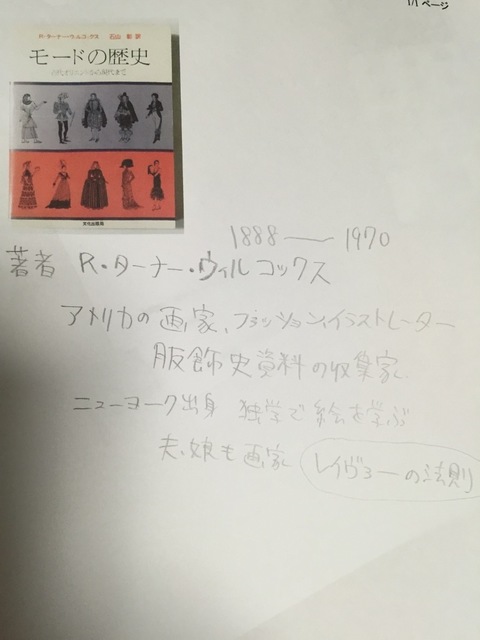 1/1 ページ
R・ターナー・ウィルコックス 石山 彰 訳
モードの歴史
古代オリエントから現代まで
文化出版局
1888 — 1970
著者 R・ターナー・ウィルコックス
アメリカの画家、ファッションイラストレーター
服飾史資料の収集家
ニューヨーク出身 独学で絵を学ぶ
夫・娘も画家 レイヴァーの法則